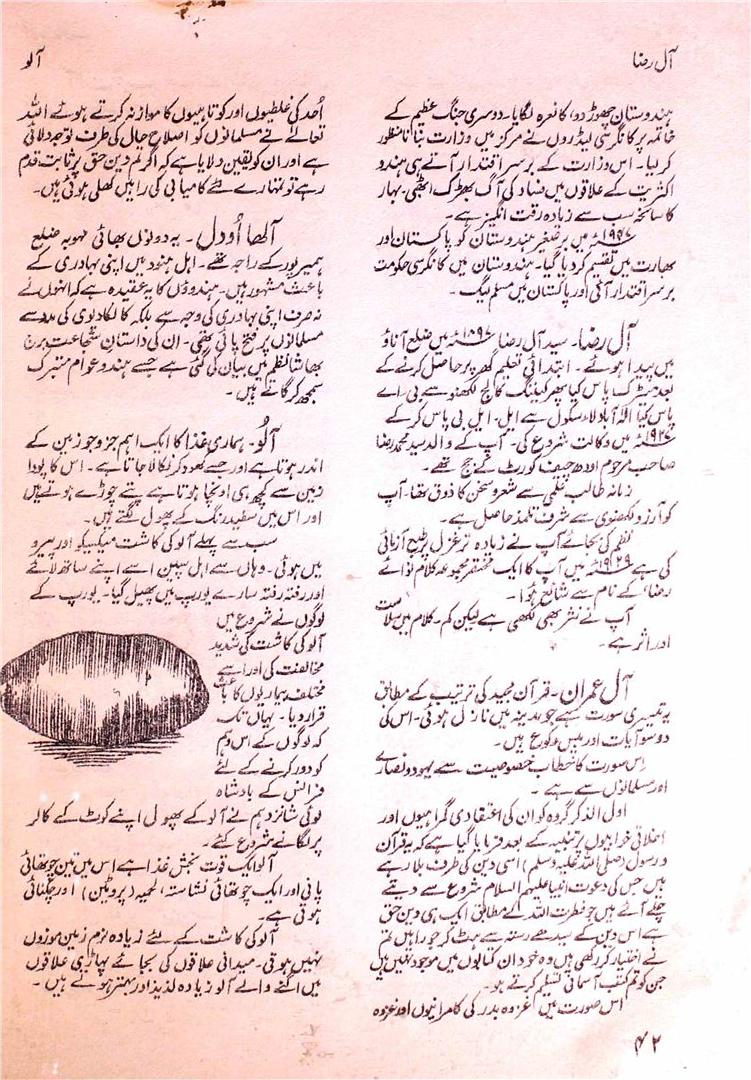 آل رضا
آلو
ہندوستان چھوڑ دو، کا نعرہ لگایا۔ دوسری جنگ عظیم کے
خاتمہ پر کانگرسی لیڈروں نے مرکز میں وزارت بنانا منظور
کر لیا۔ اس وزارت کے برسر اقتدار آتے ہی ہندو
اکثریت کے علاقوں میں فساد کی آگ بھڑک اٹھی۔ بہار
کا سانحہ سب سے زیادہ رقت انگیز ہے۔
۱۹۴۷ء میں برصغیر ہندوستان کو پاکستان اور
بھارت میں تقسیم کر دیا گیا۔ ہندوستان میں کانگرسی حکومت
برسر اقتدار آئی اور پاکستان میں مسلم لیگ۔
آل رضا۔ سید آل رضا ۱۸۹۶ء میں ضلع اناؤ
میں پیدا ہوئے۔ ابتدائی تعلیم گھر پر حاصل کرنے کے
بعد میٹرک پاس کیا پھر کیننگ کالج لکھنو سے بی اے
پاس کیا الہ آباد لاء سکول سے ایل۔ ایل بی پاس کر کے
میں وکالت شروع کی۔ آپ کے والد سید محمد رضا
صاحب مرحوم اودھ چیف کورٹ کے جج تھے۔
زمانہ طالب علمی سے شعر و سخن کا ذوق تھا۔ آپ
کو آرزو لکھنوی سے شرف تلمذ حاصل ہے۔
نظم کی بجائے آپ نے زیادہ تر غزل پر طبع آزمائی
کی ہے ۱۹۲۹ء میں آپ کا ایک مختصر مجموعہ کلام نوائے
رضا، کے نام سے شائع ہوا۔
آپ نے نثر بھی لکھی ہے لیکن کم۔ کلام میں سلاست
اور اثر ہے۔
آل عمران۔ قرآن مجید کی ترتیب کے مطابق
یہ تیسری سورت ہے جو مدینہ میں نازل ہوئی۔ اس کی
دو سو آیات اور بیس رکوع ہیں۔
اس سورت کا خطاب خصوصیت سے یہود و نصاریٰ
اور مسلمانوں سے ہے۔
اول الذکر گروہ کو ان کی اعتقادی گمراہیوں اور
اخلاقی خرابیوں پر تنبیہ کے بعد فرمایا گیا ہے کہ یہ قرآن
و رسول (صلی اللہ علیہ وسلم) اسی دین کی طرف بلا رہے
ہیں جس کی دعوت انبیا علیہم السلام شروع سے دیتے
چلے آئے ہیں جو فطرت اللہ کے مطابق ایک ہی دین حق
ہے اس دین کے سیدھے رستہ سے ہٹ کر جو راہیں تم
نے اختیار کر رکھی ہیں وہ خود ان کتابوں میں موجود نہیں ہیں
جن کو تم کتب آسمانی تسلیم کرتے ہو۔
اس صورت میں غزوہ بدر کی کامرانیوں اور غزوہ
احد کی غلطیوں اور کوتاہیوں کا موازنہ کرتے ہوئے اللہ
تعالے نے مسلمانوں کو اصلاح حال کی طرف توجہ دلائی
ہے اور ان کو یقین دلایا ہے کہ اگر تم دین حق پر ثابت قدم
رہے تو تمہارے لئے کامیابی کی راہیں کھلی ہوئی ہیں۔
آلھا اُودل۔ یہ دونوں بھائی مہوبہ ضلع
ہمیرپور کے راجہ تھے۔ اہل ہنود میں اپنی بہادری کے
باعث مشہور ہیں۔ ہندوؤں کا یہ عقیدہ ہے کہ انہوں نے
نہ صرف اپنی بہادری کی وجہ سے بلکہ کالکا دیوی کی مدد سے
مسلمانوں پر فتح پائی تھی۔ ان کی داستان شجاعت برج
بھاشا نظم میں بیان کی گئی ہے جسے ہندو عوام متبرک
سمجھ کر گاتے ہیں۔
آلُو۔ ہماری غذا کا ایک اہم جزو جو زمین کے
اندر ہوتا ہے اور جسے کھود کر نکالا جاتا ہے۔ اس کا پودا
زمین سے کچھ ہی اونچا ہوتا ہے پتے چوڑے ہوتے ہیں
اور اس میں سفید رنگ کے پھول لگتے ہیں۔
سب سے پہلے آلو کی کاشت میکسیکو اور پیرو
میں ہوئی۔ وہاں سے اہل سپین اسے اپنے ساتھ لائے
اور رفتہ رفتہ سارے یورپ میں پھیل گیا۔ یورپ کے
لوگوں نے شروع میں
آلو کی کاشت کی شدید
مخالفت کی اور اسے
مختلف بیماریوں کا باعث
قرار دیا۔ یہاں تک
کہ لوگوں کے اس وہم
کو دور کرنے کے لئے
فرانس کے بادشاہ
لوئی شانزدہم نے آلو کے پھول اپنے کوٹ کے کالر
پر لگانے شروع کئے۔
آلو ایک قوت بخش غذا ہے اس میں تین چوتھائی
پانی اور ایک چوتھائی نشاستہ، لحمیہ (پروٹین) اور چکنائی
ہوتی ہے۔
آلو کی کاشت کے لئے زیادہ نرم زمین موزوں
نہیں ہوتی۔ میدانی علاقوں کی بجائے پہاڑی علاقوں
میں اگنے والے آلو زیادہ لذیذ اور بہتر ہوتے ہیں۔
۴۲